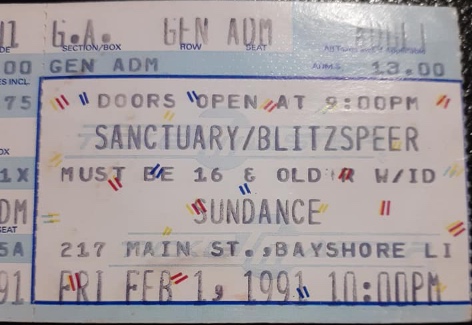 G.A. GEN ADM
SECTION/BOX ROW SEAT
GEN ADM 13.00
DOORS OPEN AT 9:00PM
SANCTUARY/BLITZSPEER
MUST BE 16 & OLDER W/ID
SUNDANCE
217 MAIN ST.,BAYSHORE LI
FRI FEB 1, 1991 10:00PM
00
ES INCL.
75
OX
1X
DM
SEAT
5A
91